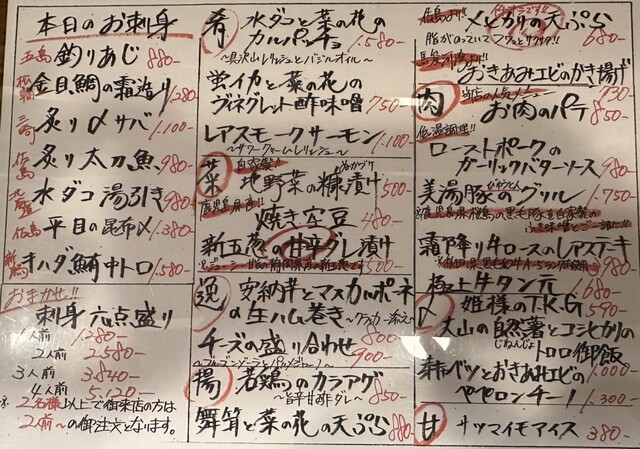 本日のお刺身
五島 釣りあじ 880-
金目鯛の霜造り 1.280-
三崎 炙り〆サバ 1.100-
広島 炙り太刀魚 980-
水ダコ湯引き 980-
広島 平目の昆布〆 1.380-
キハダ鮪中トロ 1.580-
おまかせ!!
刺身六点盛り
1人前 1.280-
2人前 2.580-
3人前 3.840-
4人前 5.120-
2名様以上で御来店の方は
2人前〜の御注文となります。
肴
水ダコと菜の花の
カルパッチョ 1.580-
蛍イカと菜の花の
ヴィネグレット酢味噌 750-
レアスモークサーモン 1.100-
〜サワークリームレリッシュ〜
菜
自家製
地野菜の糠漬け 500-
鹿児島県産!!
焼き空豆 480-
新玉葱の甘辛ダレ漬け 500-
逸
安納芋とマスカルポーネ
の生ハム巻き 800-
〜クラッカー添え〜
チーズの盛り合わせ 900-
揚
若鶏のカラアゲ 850-
〜旨辛甘酢ダレ〜
舞茸と菜の花の天ぷら 880-
メヒカリの天ぷら 680-
脂がのっていてフワッとサクサク!!
おきあみエビのかき揚げ 730-
肉
当店の人気メニュー
お肉のパテ 850-
低温調理!!
ローストポークの
ガーリックバターソース 980-
美湯豚のグリル 1.750-
霜降り牛ロースのレアステーキ
極上牛タン 1.680-
〆
姫様のT.K.G 590-
大山の自然薯とコシヒカリの
じねんじょ
トロロ御飯 1.000-
春キャベツとおきあみエビの
ペペロンチーノ 1.300-
甘
サツマイモアイス 380-